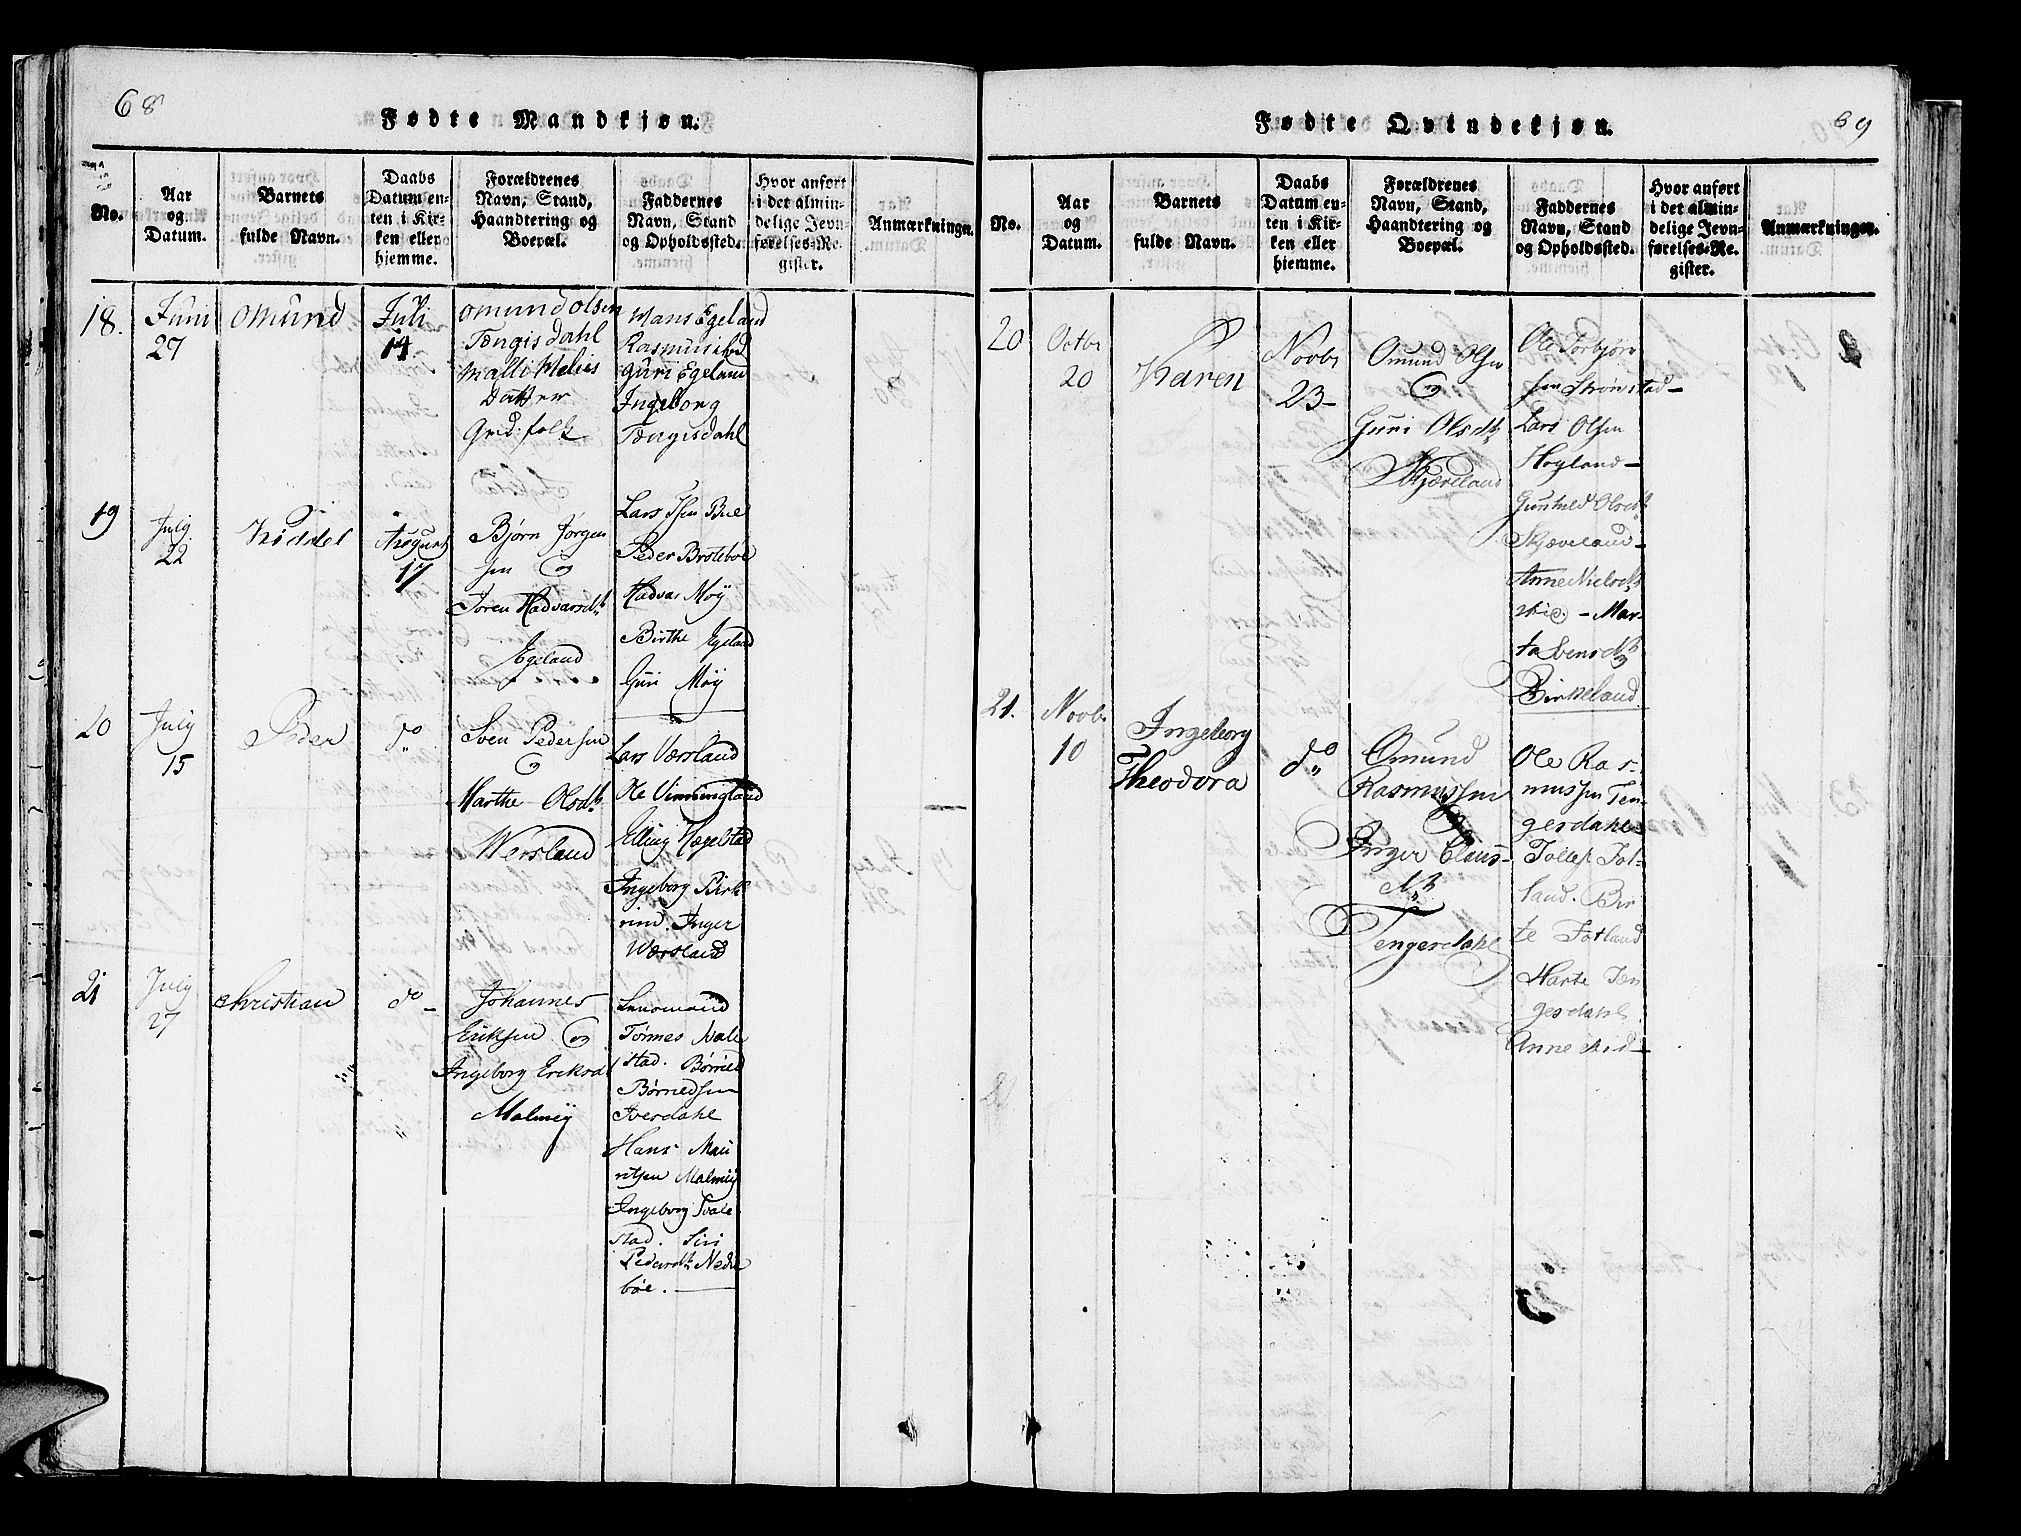 68
Fødte Mandkjøn.
No.
Aar og Datum.
Barnets fulde Navn.
Daabs Datum enten i Kirken eller hjemme.
Forældrenes Navn, Stand, Haandtering og Boepæl.
Faddernes Navn, Stand og Opholdssted.
Hvor anført i det almindelige Jevnførelses-Register.
Anmærkninger.
18.
Juni
27
Omund
Juli
14
Omund Olsen
Tengisdahl
Datter
Grd: folk
Hans Egeland
Guri Egeland
Ingeborg
Tengisdahl
19
July
22
Kiddel
August
17
Bjørn Jørgen
sen og
Joren Hadvarsdtr
Egeland
Lars Bue
Peder Broleboe
Hadvar Møy
Birthe Egeland
Guri Møy
20
July
15
Peder
do
Sven Pedersen
og
Marthe Olsdtr
Wersland
Lars Wersland
Ole Vinningland
Elling Hegelstad
Ingeborg Birk
rim. Inger
Wersland
21
July
27
Christian
do -
Johannes
Eriksen og
Ingeborg Eriksdt
Malmey
Lensmand
Tørnes Svale
stad. Børned
Børnedsen
Iversdahl
Hans Mau
ritsen Malmey
Ingeborg Svale
stad. Siri
Pedersdtr Nedre
bøe.
69
Fødte Qvindekjøn.
No.
Aar og Datum.
Barnets fulde Navn.
Daabs Datum enten i Kirken eller hjemme.
Forældrenes Navn, Stand, Haandtering og Boepæl.
Faddernes Navn, Stand og Opholdssted.
Hvor anført i det almindelige Jevnførelses-Register.
Anmærkninger.
20
Octbr
20
Karen
Novbr
23-
Omund Olsen
og
Guri Olsdtr
Skjæveland
Ole Torbjørn
sen Strønstad-
Lars Olsen
Høyland-
Gunhild Olsdtr
Skjæveland-
Anne Nielsdtr
- Mar-
ta Svensdtr
Birkeland.
21.
Novbr
10
Ingeborg
Theodora
do
Omund
Rasmussen
og
Inger Claus-
dtr
Tengesdahl
Ole Ras-
mussen Ten-
gesdahl
Tollef Fot-
land. Bir
te Fotland
Marte Ten
gesdahl.
Anne